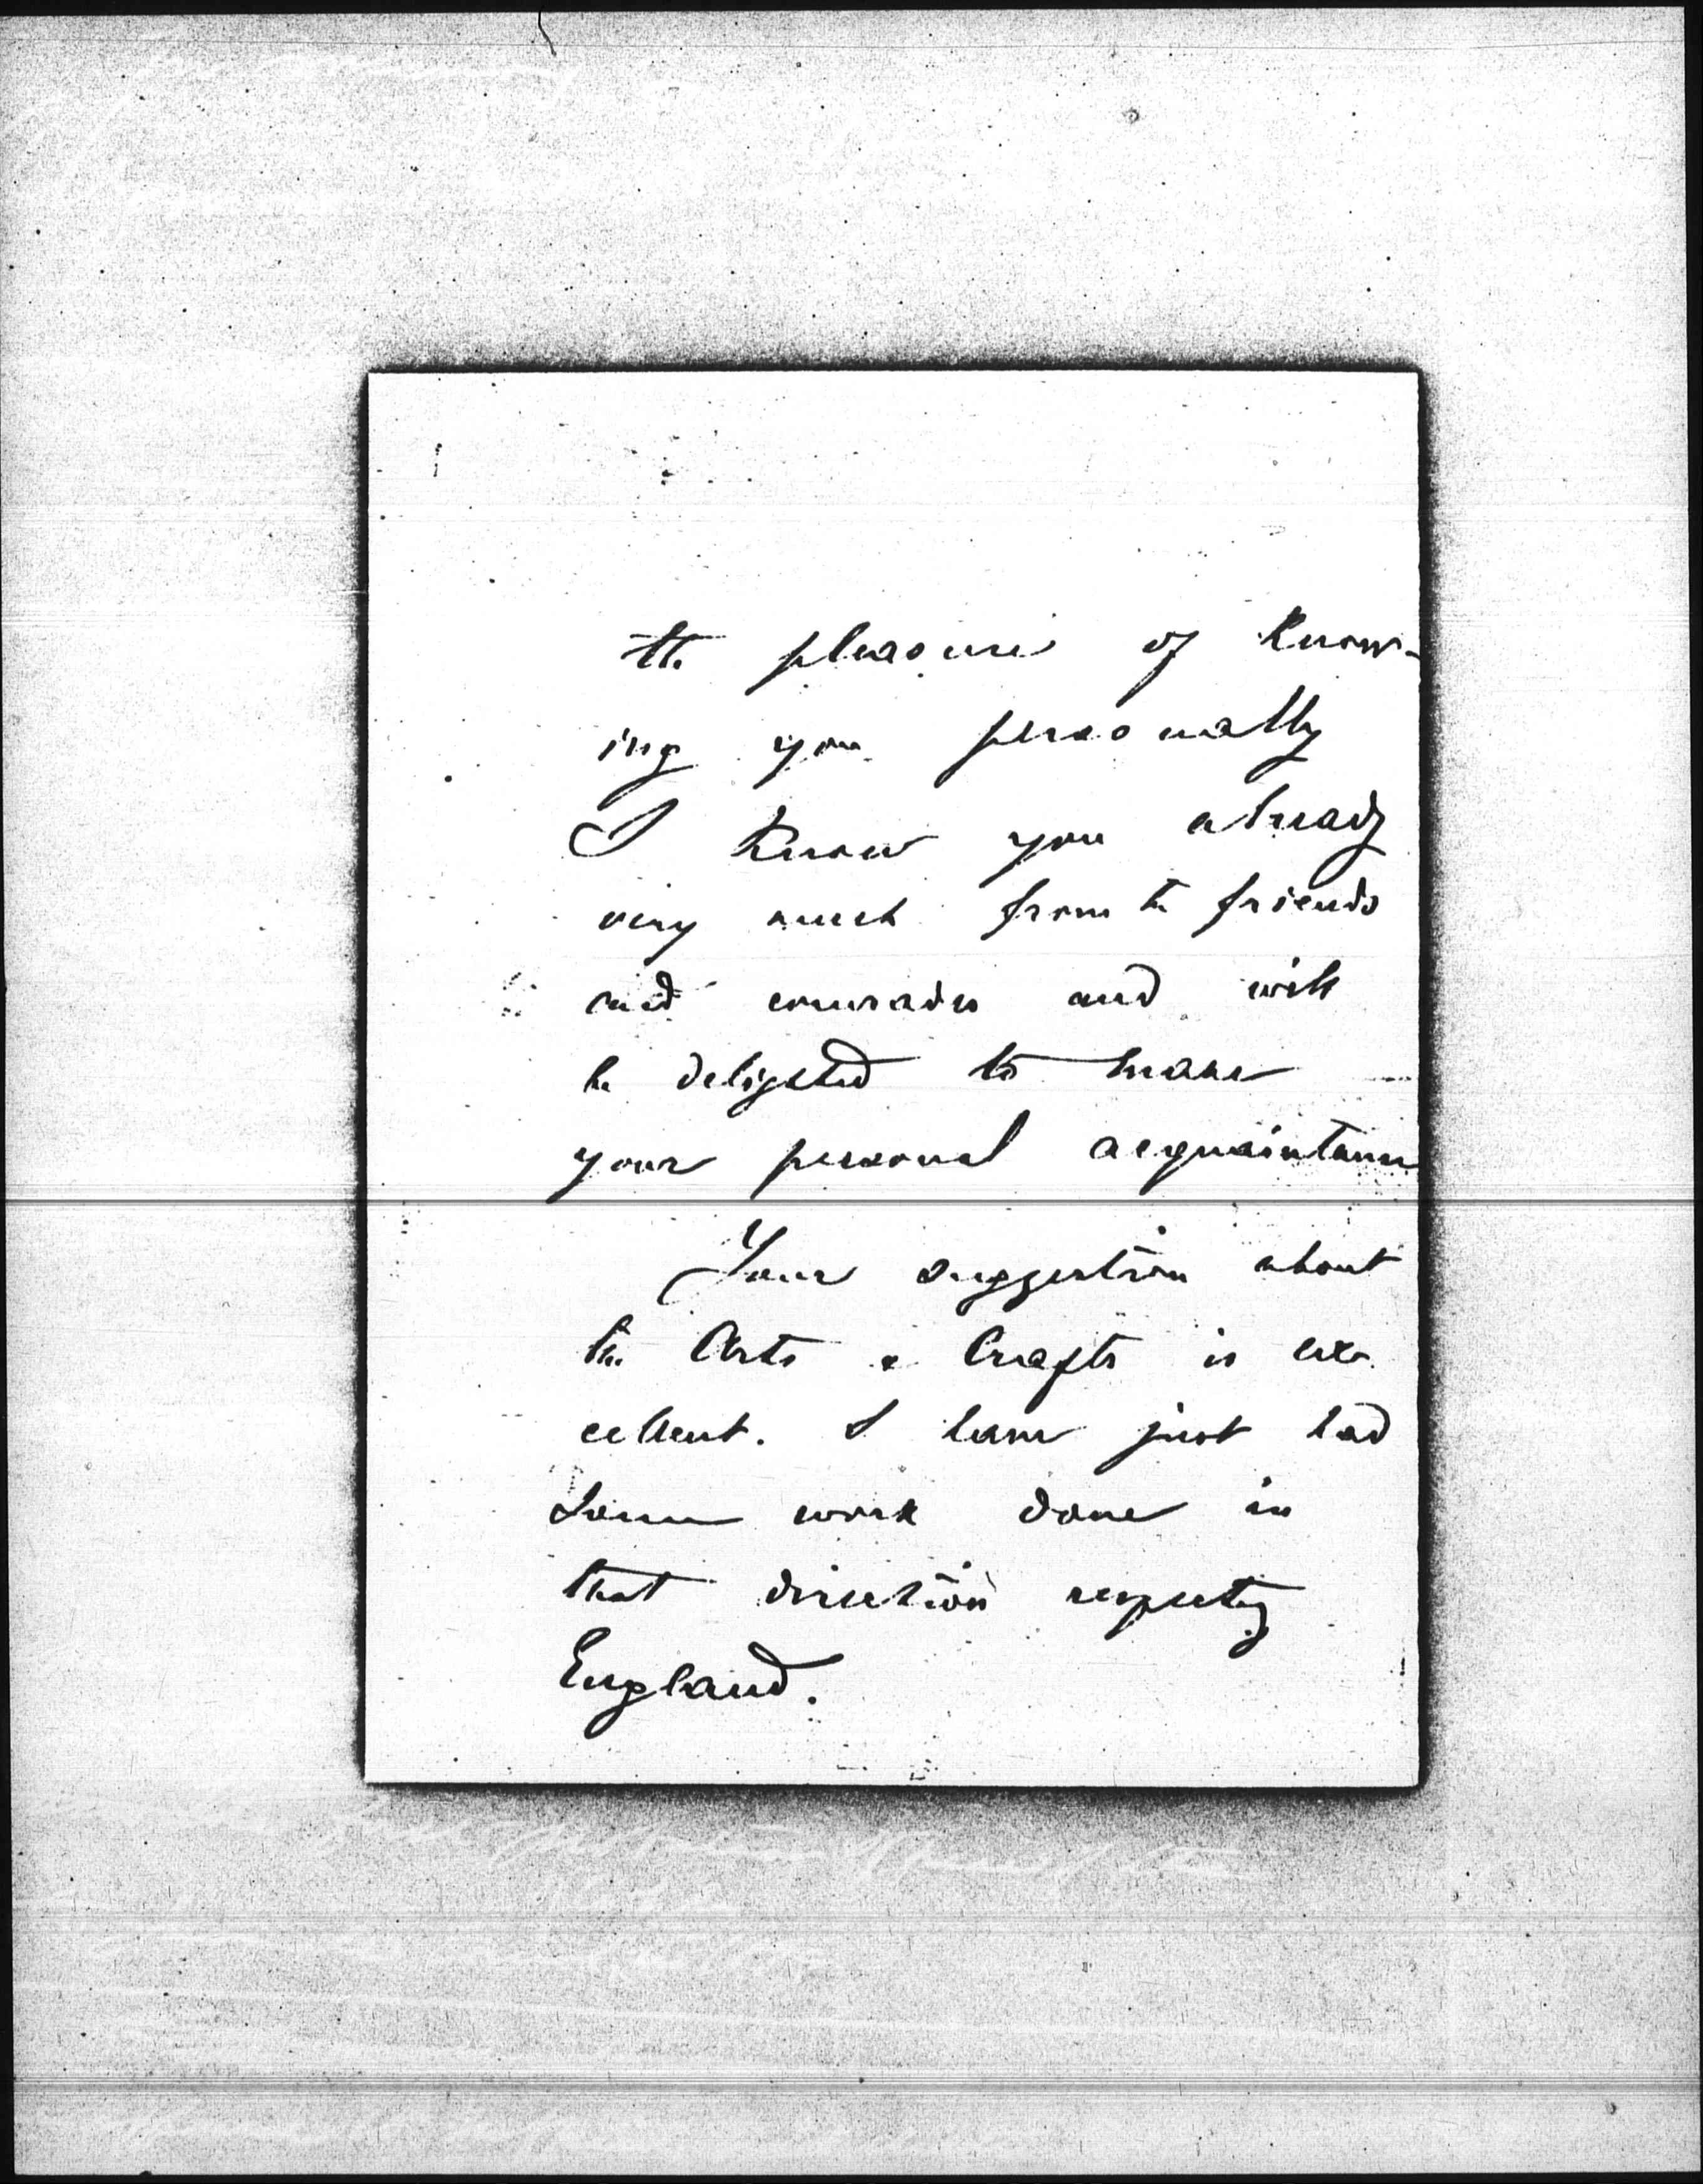 the pleasure of know-
ing you personally
I know you already
very much from the friends
and comrades and will
be delighted to make
your personal acquaintance
Your suggestion about
the Arts & Crafts is ex
cellent. I have just had
some work done in
that direction respecting
England.